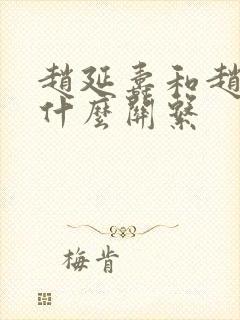 趙延壽和趙
什麼關繫
梅肯